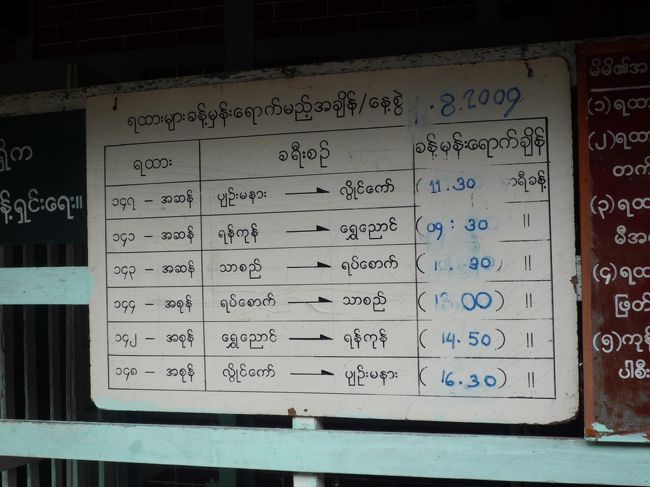 ရထားများခန့်မှန်းရောက်မည့်အချိန်/နေ့စွဲ .8.2009
ရထား ခရီးစဉ် ခန့်မှန်းရောက်ချိန်
၁၄၇ - အဆန် ပျဉ်းမနား → လွိုင်ကော် ( 11.30 နာရီခန့်
၁၄၁ - အဆန် ရန်ကုန် → ရွှေညောင် ( 09:30 "
၁၄၃ - အဆန် သာစည် → ရပ်စောက် ( .30) "
၁၄၄ - အစုန် ရပ်စောက် → သာစည် ( :00) "
၁၄၂ - အစုန် ရွှေညောင် → ရန်ကုန် ( 14.50) "
၁၄၈ - အစုန် လွိုင်ကော် → ပျဉ်းမနား ( 16.30) "
ရှိက
န့်ရှင်းရေး။
မိမိ၏အ
(၁) ရထ
(၂) ရထ
တက်
(၃) ရထ
မီအ
(၄) ရထ
ဖြတ်
(၅) ကုန်
ပါစီး